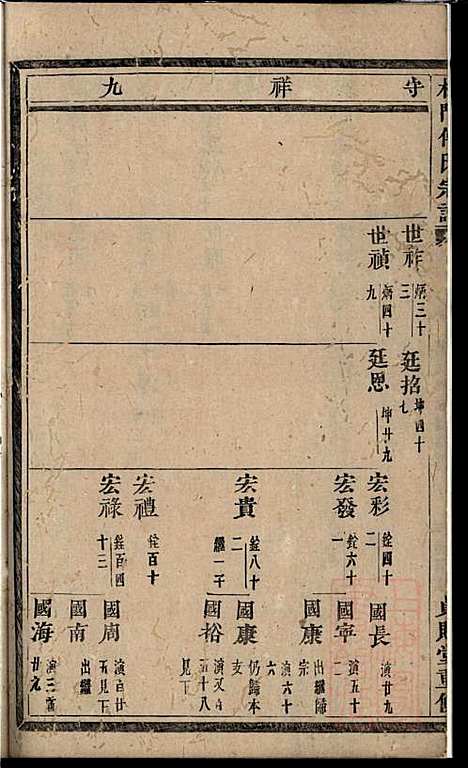 守祥九
世祚
炳三十三
世禎
炳四十九
廷掐
坤四十七
廷恩
坤廿九
宏彩
銓四十二
宏發
銓六十一
宏貴
銓八十二
繼一子
宏禮
銓百十
宏祿
銓百四十二
國長
演廿九
國寧
演五十二
國康
出繼歸宗
演六十六
國康
仍歸本支
國裕
演又五十八
見下
國周
演百廿五見下
國南
出繼
國海
演三百廿九